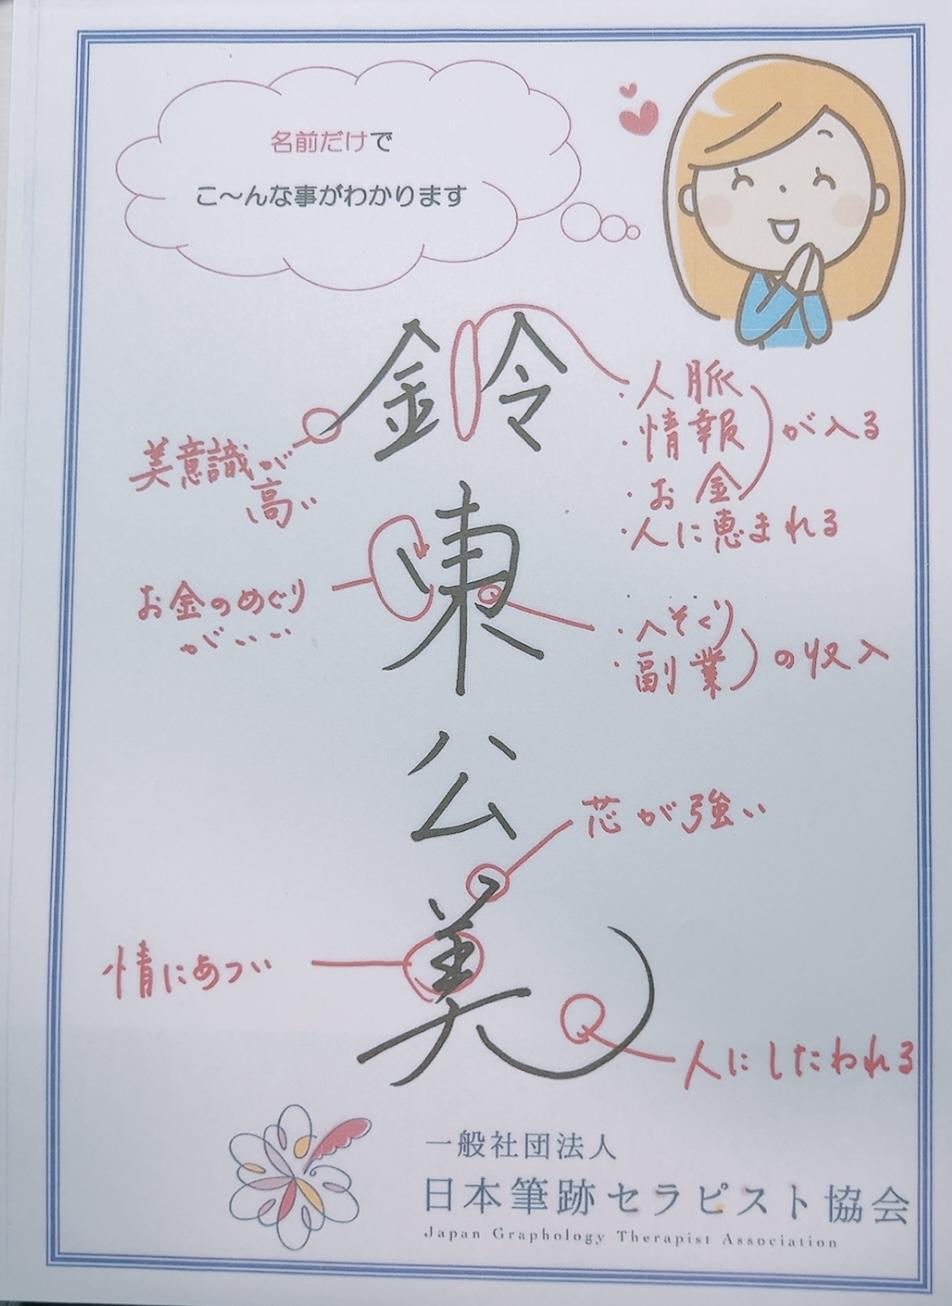 名前だけで
こ〜んな事がわかります
鈴東公美
美意識が
高い
・人脈
・情報
・お金
が入る
・人に恵まれる
お金のめぐり
がいい
・へそくり
・副業
の収入
芯が強い
情にあつい
人にしたわれる
一般社団法人
日本筆跡セラピスト協会
Japan Graphology Therapist Association